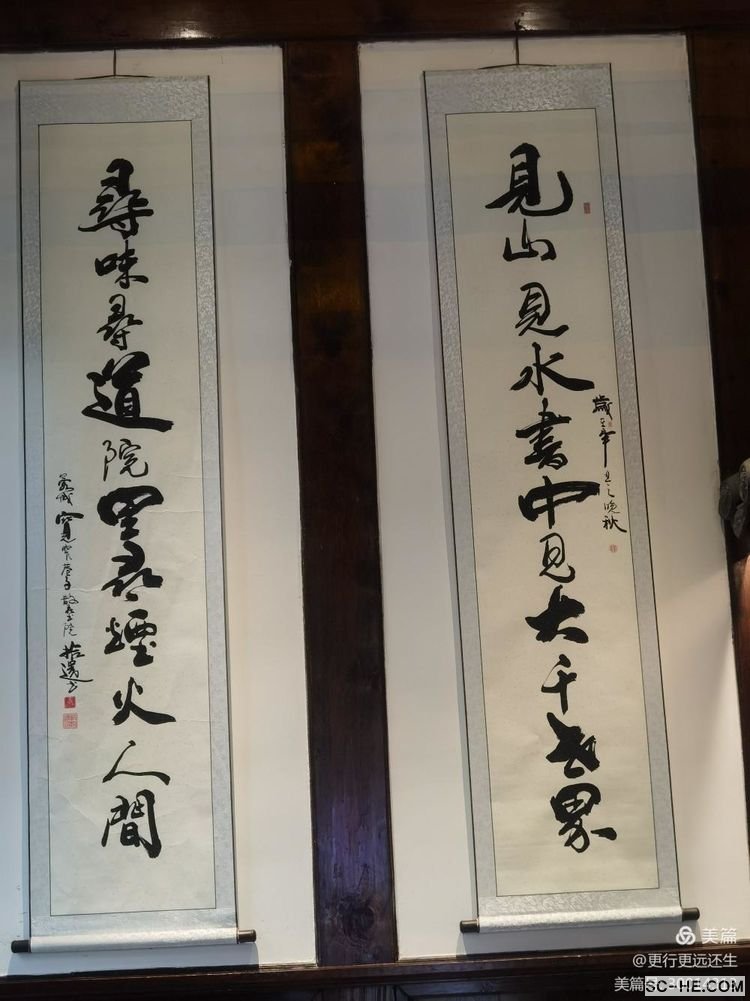 見山見水書中見大千世界
歲辛丑之晚秋
尋味尋道院里尋煙火人間
寬窄巷子
美篇
@更行更远还生
美篇
SC-HE.COM